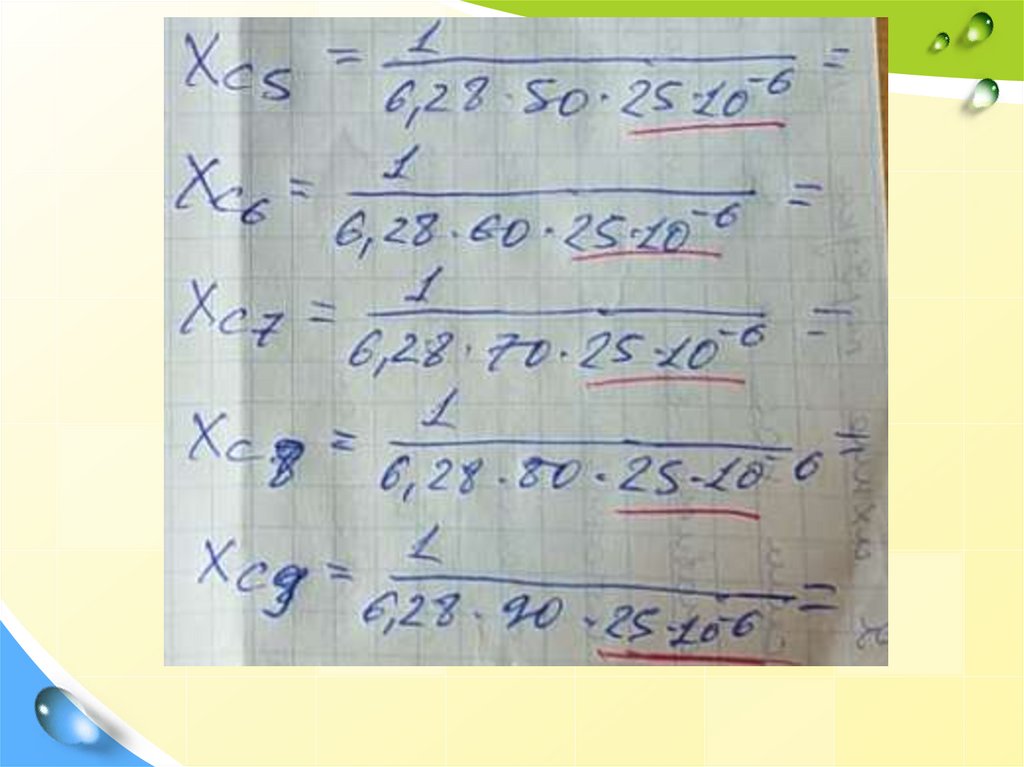 Xc5 = 1 / 6,28·50·25·10⁻⁶ =
Xc6 = 1 / 6,28·60·25·10⁻⁶ =
Xc7 = 1 / 6,28·70·25·10⁻⁶ =
Xc8 = 1 / 6,28·80·25·10⁻⁶ =
Xc9 = 1 / 6,28·90·25·10⁻⁶ =